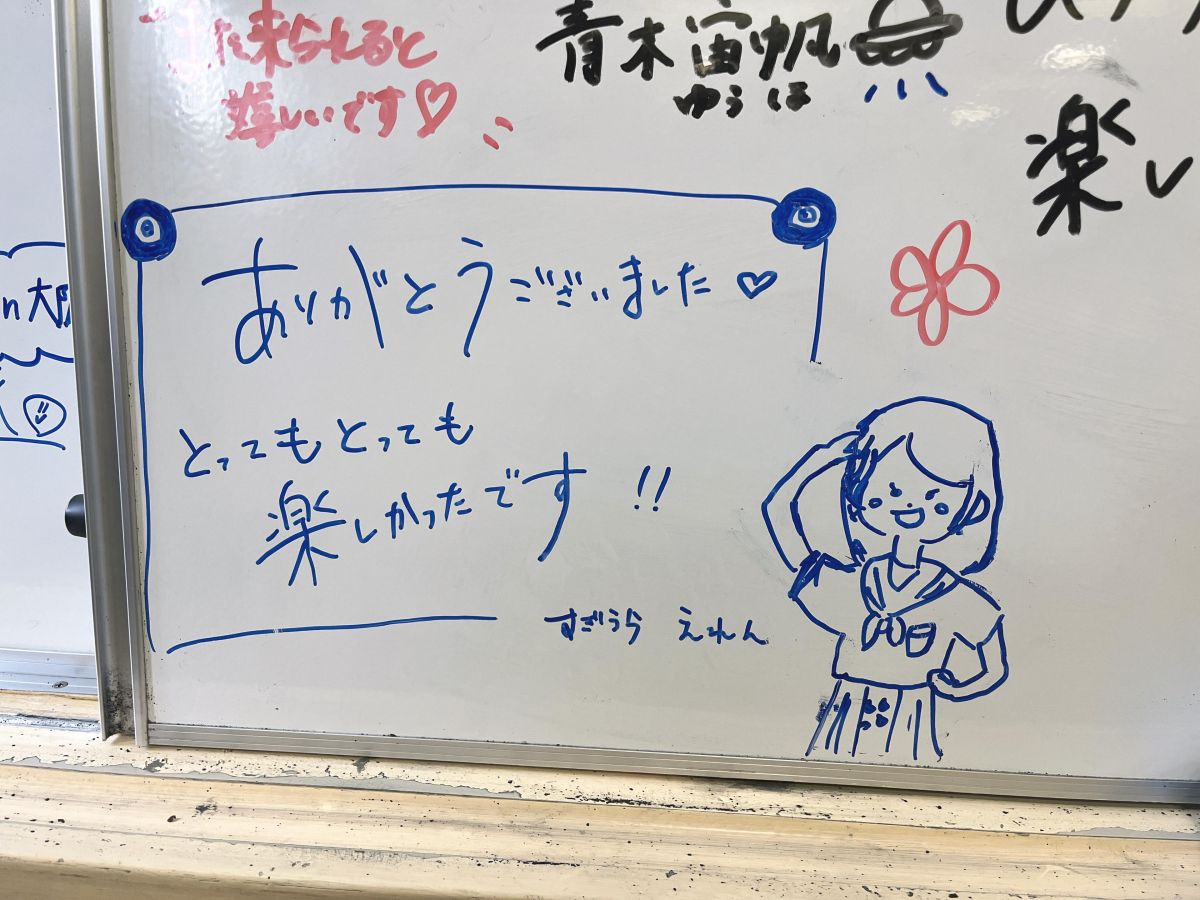 また来られると
嬉しいです♡
青木宙帆
ゆうほ
楽し
n大阪
ありがとうございました♡
とってもとっても
楽しかったです!!
すがうら えれん